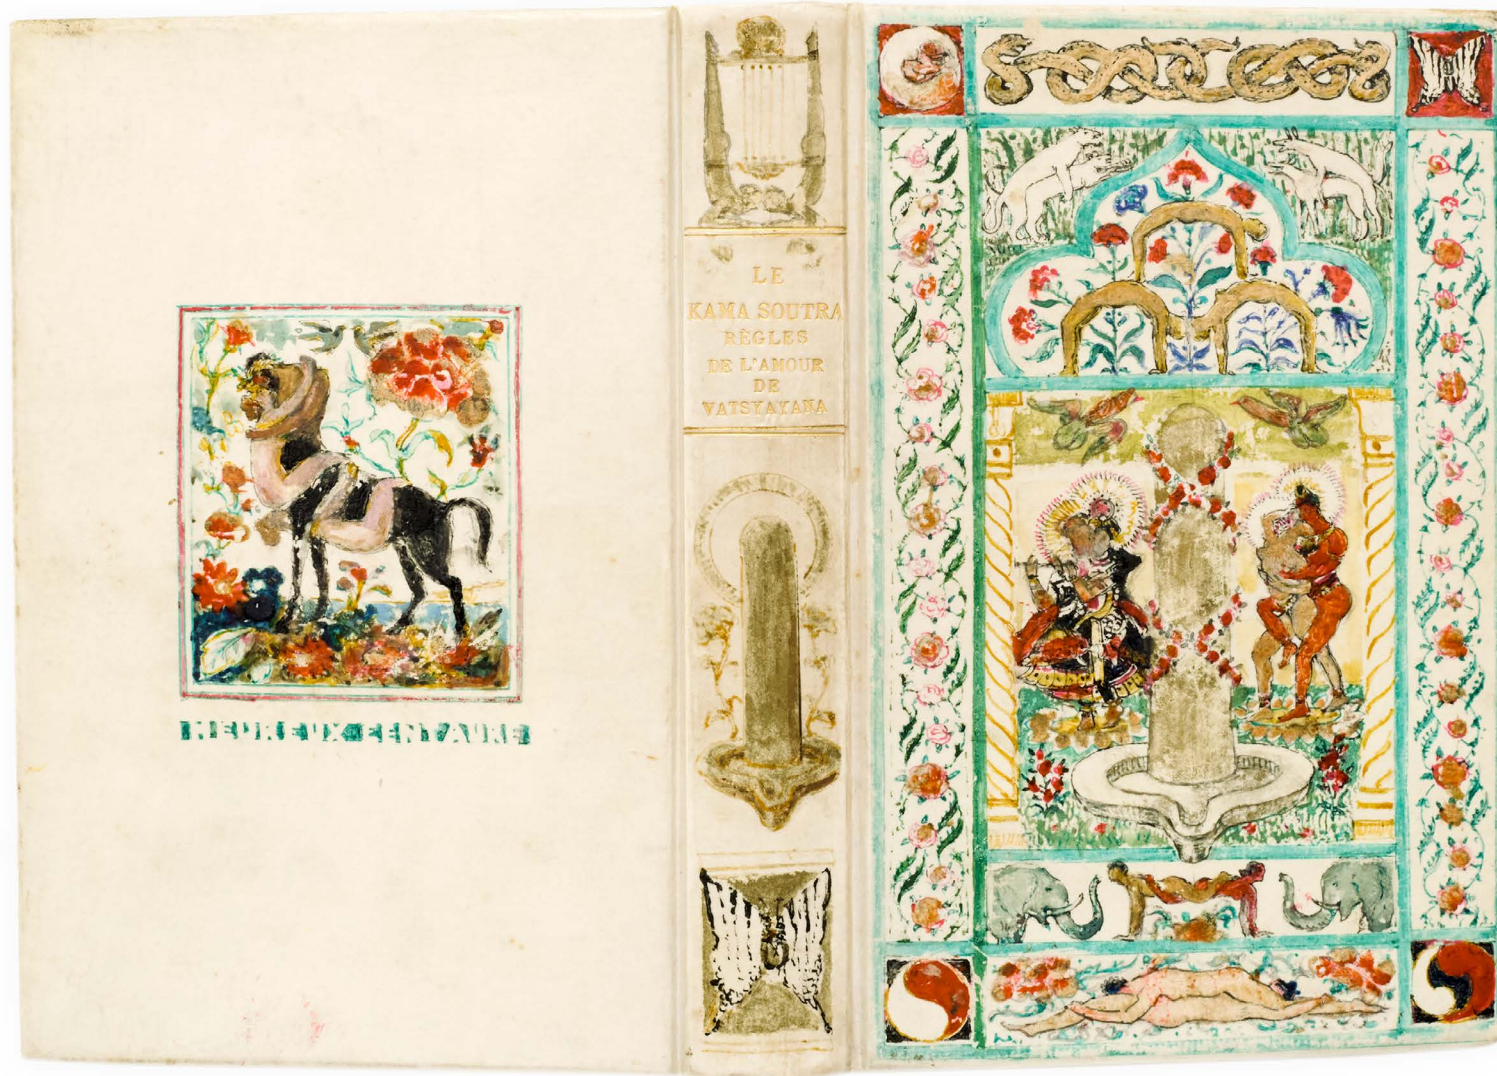 HEUREUX CENTAURE
LE
KAMA SOUTRA
RÈGLES
DE L'AMOUR
DE
VATSYAYANA